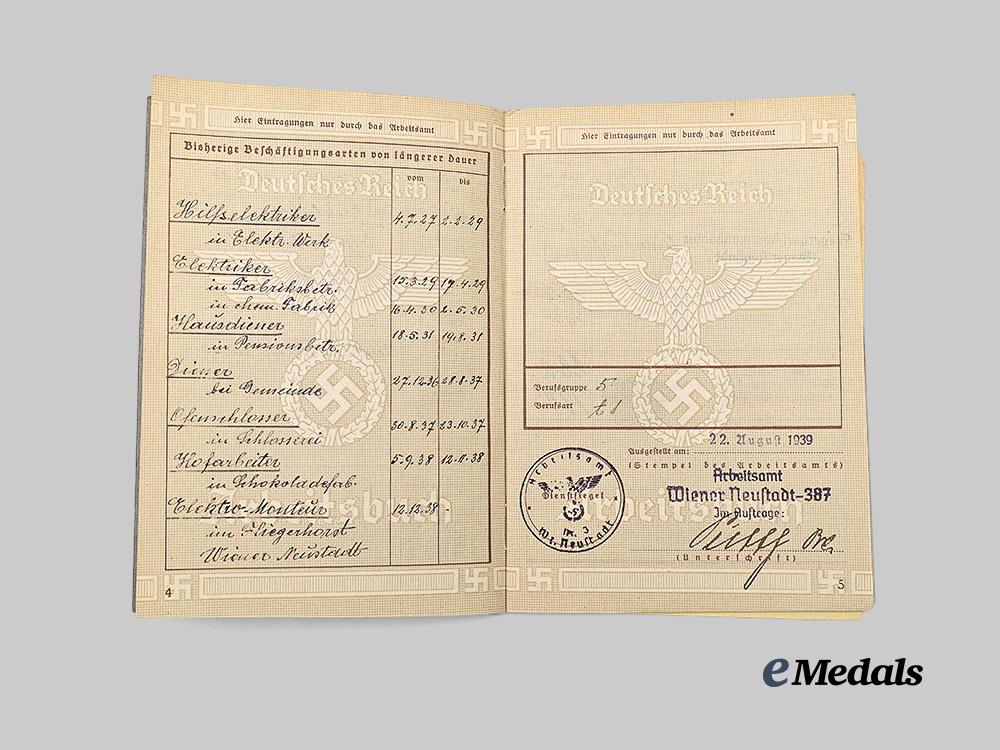 Hier Eintragungen nur durch das Arbeitsamt
Bisherige Beschäftigungsarten von längerer Dauer
vom bis
Deutsches Reich
Hilfselektriker 4.7.27 2.2.29
in Elektr. Werk
Elektriker
in Fabriksbetr. 15.3.29 17.4.29
in chem. Fabrik 16.4.30 2.5.30
Hausdiener
in Pensionsbetr. 18.5.31 19.8.31
Diener
bei Gemeinde 27.12.36 28.8.37
Ofenschlosser
in Schlosserei 30.8.37 23.10.37
Hofarbeiter 5.9.38 12.11.38
in Schokoladefab.
Elektro-Monteur 12.12.38 -
im Fliegerhorst
Wiener Neustadt
Arbeitsbuch
4
Hier Eintragungen nur durch das Arbeitsamt
Deutsches Reich
Berufsgruppe 5
Berufsart
Ausgestellt am: 22. August 1939
(Stempel des Arbeitsamts)
Arbeitsamt
Wiener Neustadt-387
Im Auftrage:
(Unterschrift)
Arbeitsamt
Dienstsiegel
Nr. 3
Wr. Neustadt
Arbeitsbuch
5
eMedals